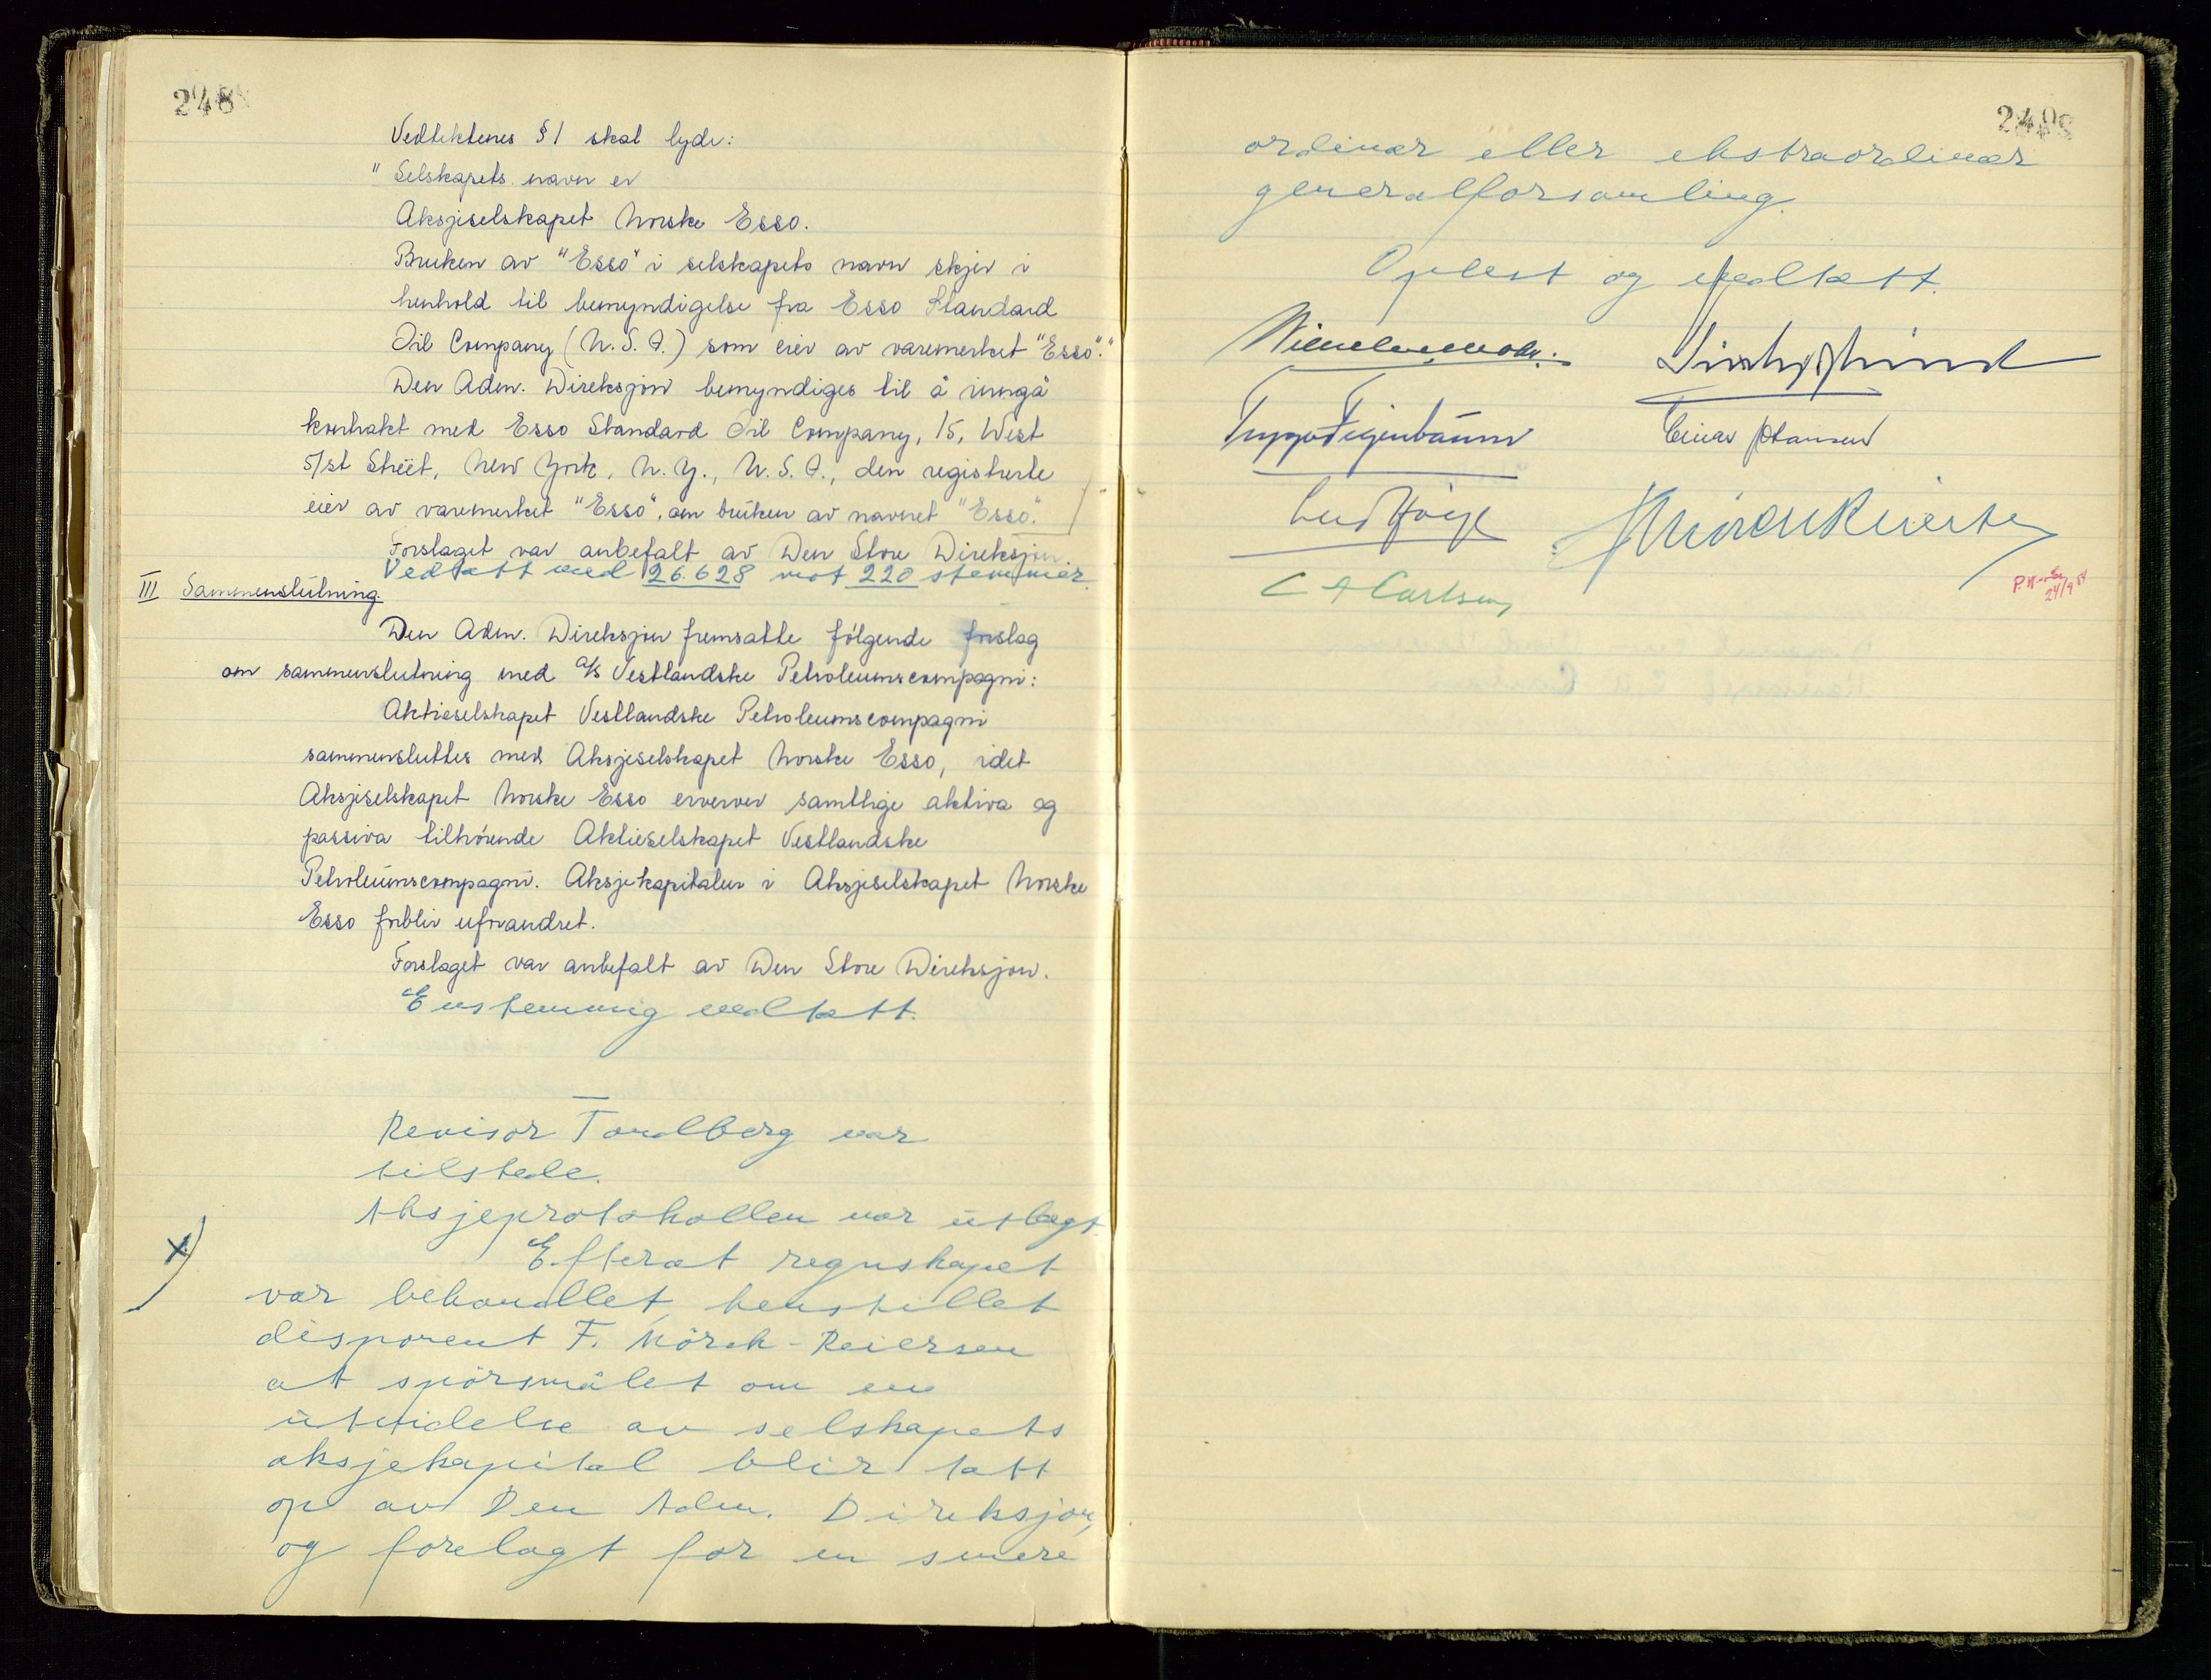 248
Vedtektenes § 1 skal lyde:
" Selskapets navn er
Aksjeselskapet Norske Esso.
Bruken av "Esso" i selskapets navn skjer i
henhold til bemyndigelse fra Esso Standard
Oil Company (U.S.A.) som eier av varemerket "Esso"."
Den Adm. Direksjon bemyndiges til å inngå
kontrakt med Esso Standard Oil Company, 15, West
51st Street, New York, N.Y., U.S.A., den registrerte
eier av varemerket "Esso", om bruken av navnet "Esso."
Forslaget var anbefalt av Den Store Direksjon.
Vedtatt med 26.628 mot 220 stemmer
III Sammenslutning.
Den Adm. Direksjon fremsatte følgende forslag
om sammenslutning med A/S Vestlandske Petroleumscompagni:
Aktieselskapet Vestlandske Petroleumscompagni
sammensluttes med Aksjeselskapet Norske Esso, idet
Aksjeselskapet Norske Esso erverver samtlige aktiva og
passiva tilhørende Aktieselskapet Vestlandske
Petroleumscompagni. Aksjekapitalen i Aksjeselskapet Norske
Esso forblir uforandret.
Forslaget var anbefalt av Den Store Direksjon.
Enstemmig vedtatt.
Revisor Tandberg var
tilstede.
Aksjeprotokollen var utlagt.
x) Efterat regnskapet
var behandlet, henstillet
disponent F. Mörch-Reiersen
at spörsmålet om en
utvidelse av selskapets
aksjekapital blir tatt
op av Den Adm. Direksjon,
og forelagt for en senere
249
ordinær eller ekstraordinær
generalforsamling.
Oplest og vedtatt.
Wilhelm Mohr.
Trygve Figenbaum Einar Hansen
Leif Höegh F Mörch Reiersen
C A Carlsen
24/9 54